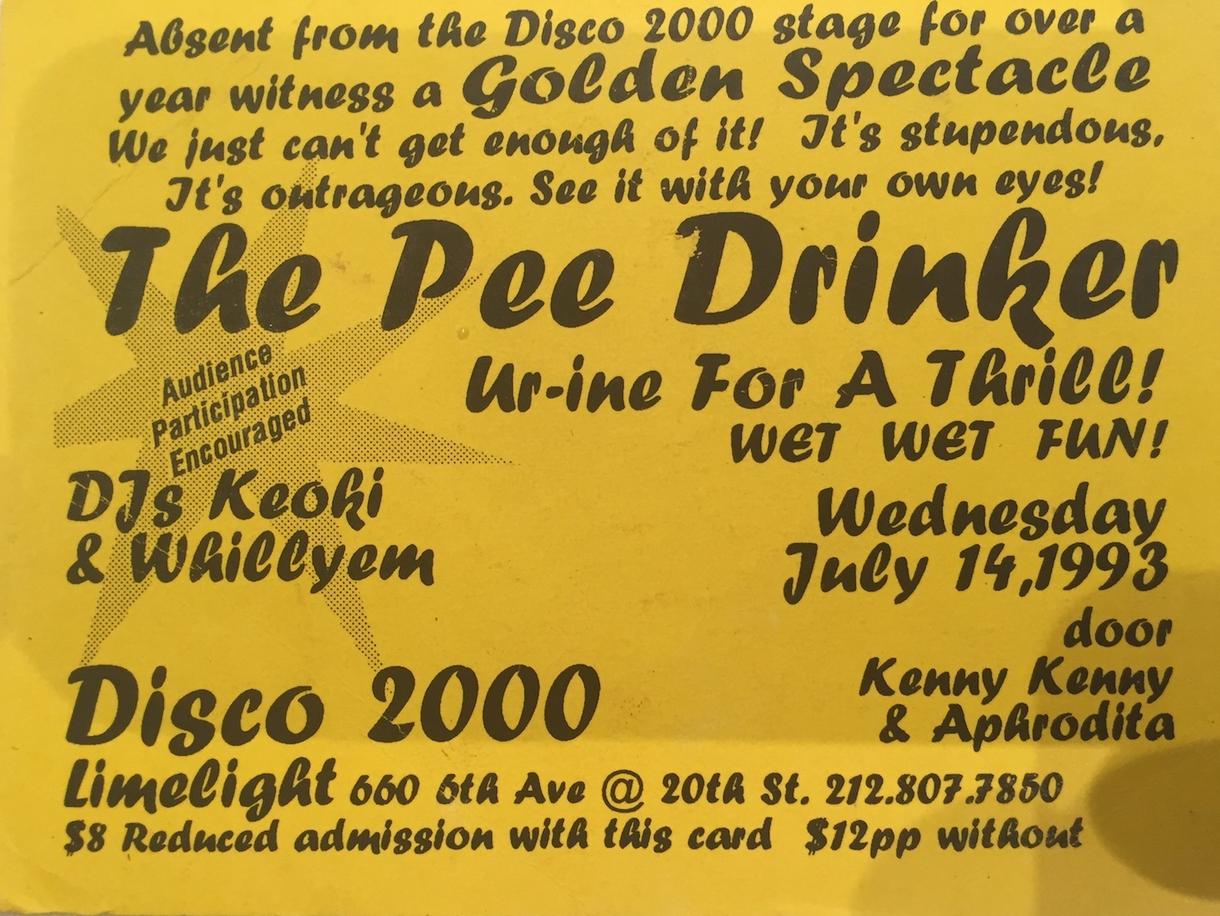 Absent from the Disco 2000 stage for over a
year witness a Golden Spectacle
We just can't get enough of it! It's stupendous,
It's outrageous. See it with your own eyes!
The Pee Drinker
Ur-ine For A Thrill!
WET WET FUN!
Audience
Participation
Encouraged
DJs Keoki
& Whillyem
Wednesday
July 14,1993
door
Kenny Kenny
& Aphrodita
Disco 2000
Limelight 660 6th Ave @ 20th St. 212.807.7850
$8 Reduced admission with this card $12pp without